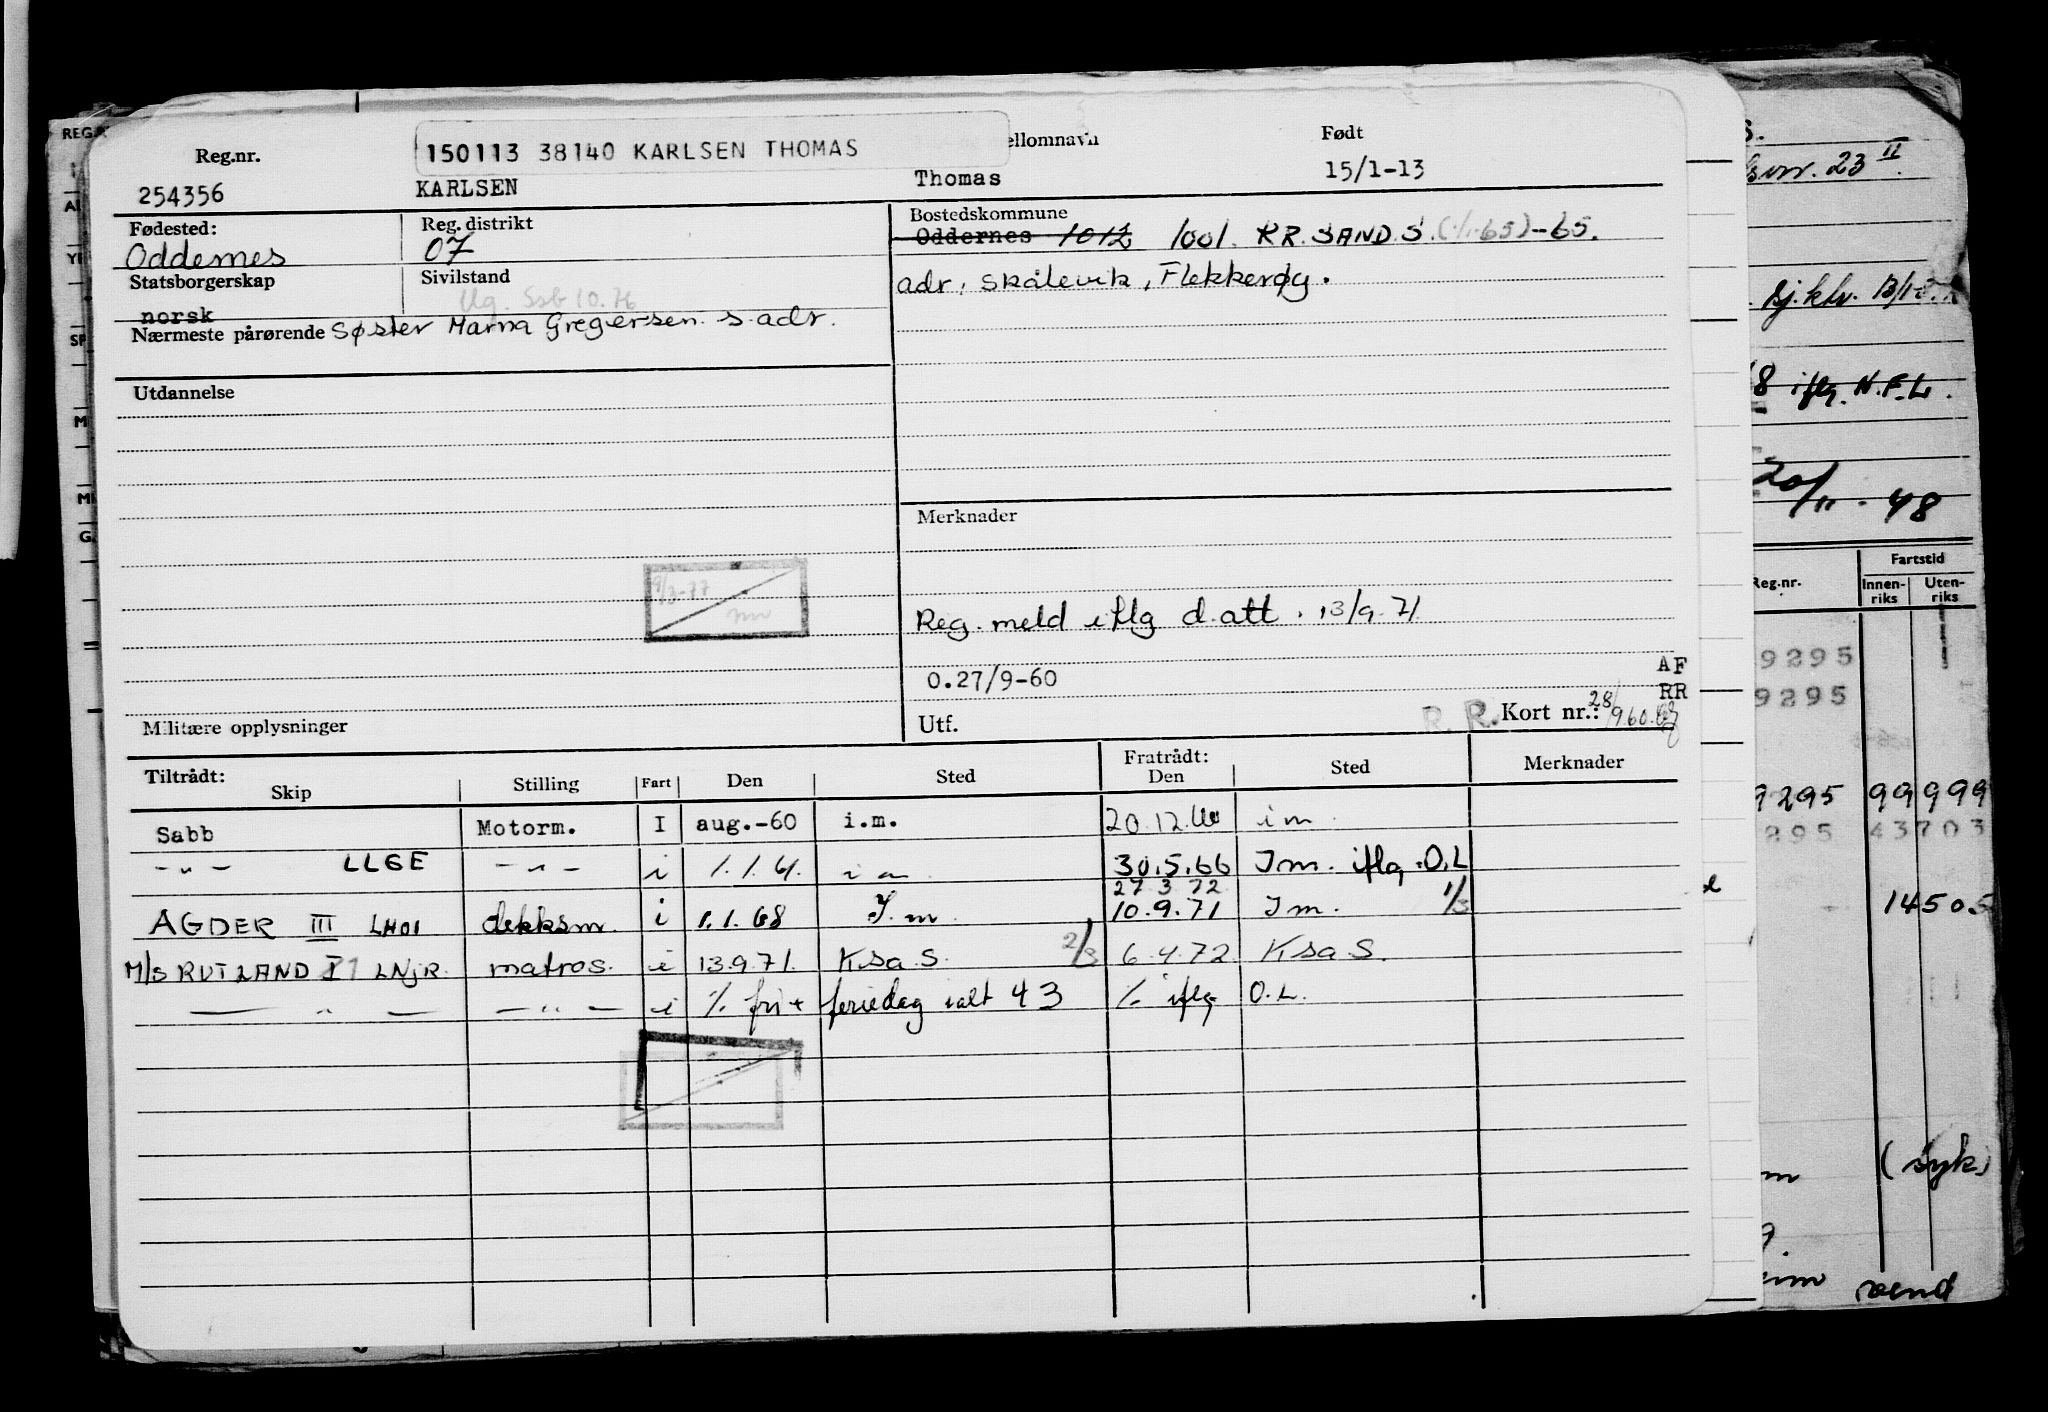 Reg.nr. 150113 38140 KARLSEN THOMAS ellomnavn Født
254356 KARLSEN Thomas 15/1-13
Fødested: Reg. distrikt Bostedskommune
Oddernes 07 Oddernes 1012 1001. KR. SAND. S. (1/1-65)-65.
Statsborgerskap Sivilstand adr. Skålevik, Flekkerøy.
norsk
Nærmeste pårørende Søster Marna Gregersen s. adr.
Utdannelse
Merknader
9/3-77
Reg. meld iflg d. att. 13/9.71
0.27/9-60 AF
RR
Militære opplysninger Utf. R. R. Kort nr.: 28/9 60.
Tiltrådt: Fratrådt:
Skip Stilling Fart Den Sted Den Sted Merknader
Sabb Motorm. I aug.-60 i.m. 20.12. i m
- " - LLGE - " - i 1.1.61. i m 30.5.66 I m. iflg. O.L
27 3 72
AGDER III LHOI dekksm. i 1.1.68 I. m. 10.9.71 I m. 1/3
M/S RUTLAND I LNJR. matros. i 13.9.71. Ksa S. 2/3 6.4.72 Ksa S.
— " — — " — i % fri + feriedag ialt 43 % iflg O.L.
REG.
23 II
Sj.
8 iflg. N.F.L.
20/11-48
Reg.nr. Fartstid
Innen-
riks Uten-
riks
9295
9295
9295 99 999
295 43703
1450
(syk)